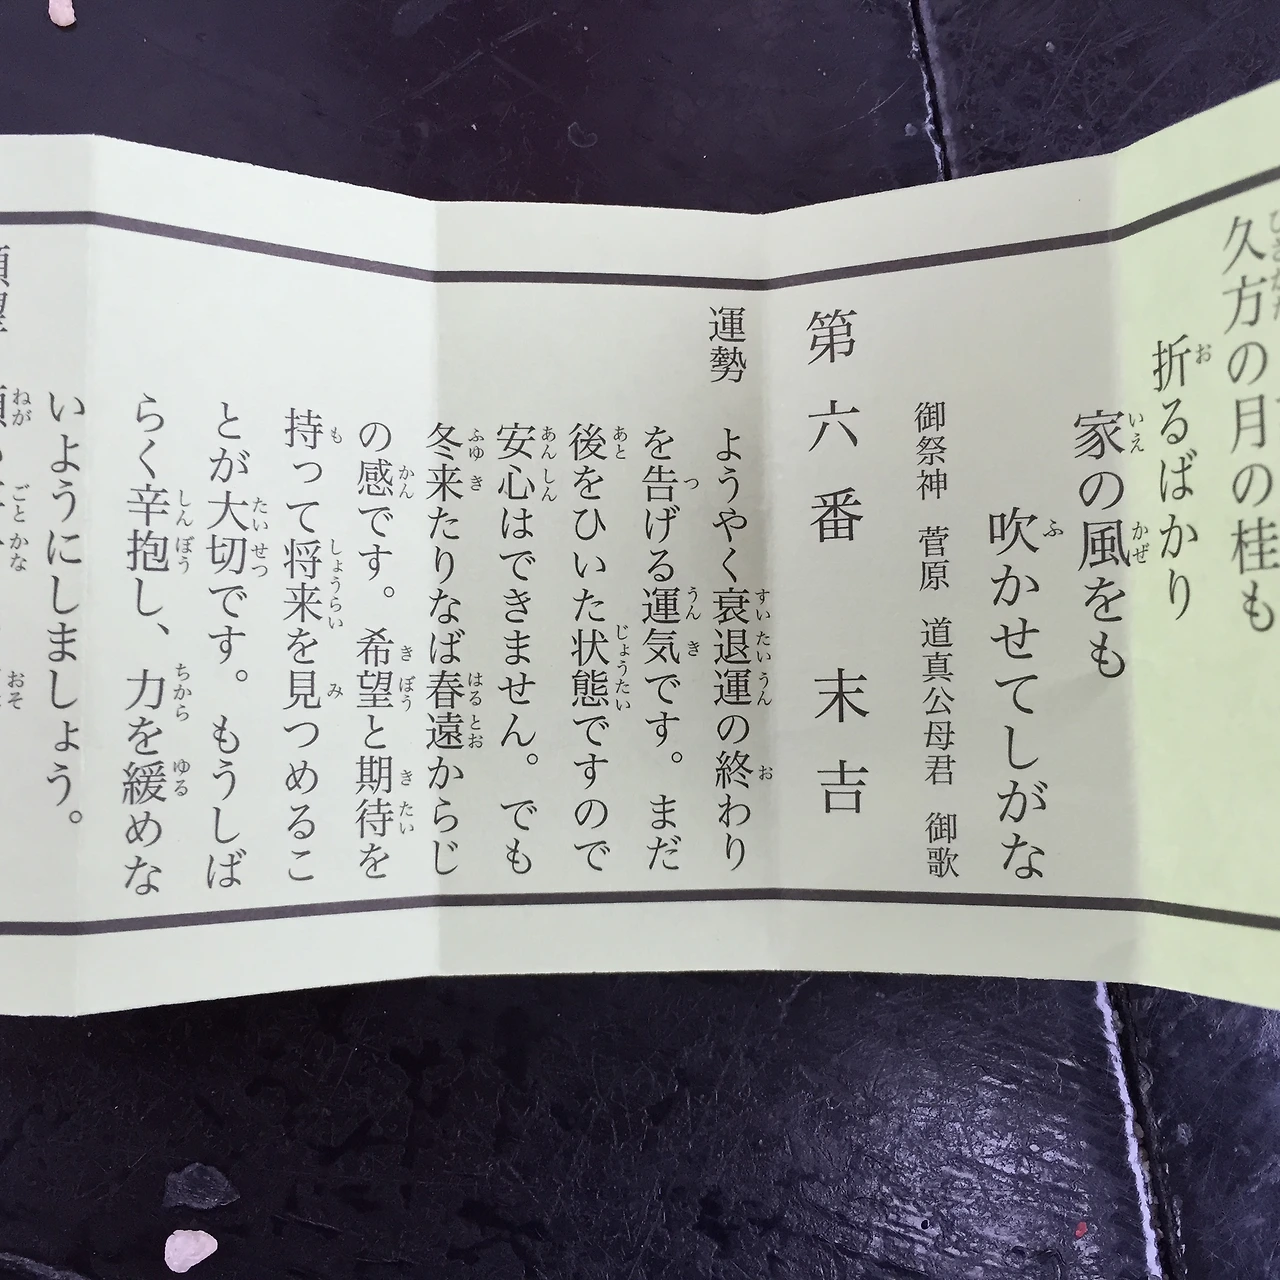 久方の月の桂も
折るばかり
家の風をも
吹かせてしがな
御祭神 菅原 道真公母君 御歌
第六番 末吉
運勢 ようやく衰退運の終わり
を告げる運気です。まだ
後をひいた状態ですので
安心はできません。でも
冬来たりなば春遠からじ
の感です。希望と期待を
持って将来を見つめるこ
とが大切です。もうしば
らく辛抱し、力を緩めな
いようにしましょう。